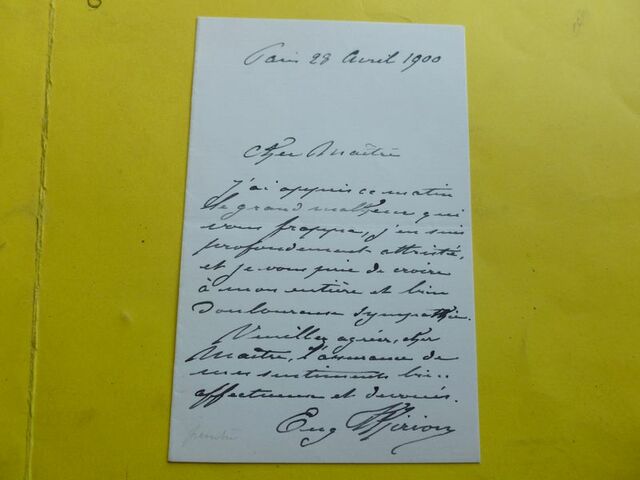 Paris 28 Avril 1900
Cher Maître
J'ai appris ce matin
le grand malheur qui
vous frappe, j'en suis
profondément attristé,
et je vous prie de croire
à mon entière et bien
douloureuse sympathie.
Veuillez agréer, cher
Maître, l'assurance de
mes sentiments bien
affectueux et dévoués.
Eug Thirion